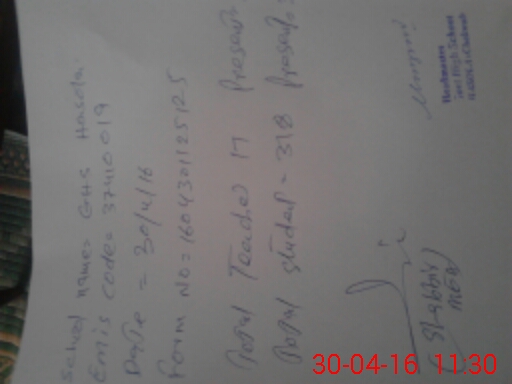 School name = GHS Hasola
Emis code = 37410019
Date = 30/4/16
Form No = 1604301125125
Total Teacher 17 Present
Total student = 318 Present
Headmaster
Govt High School
(Shabbir
MEA)
30-04-16 11:30